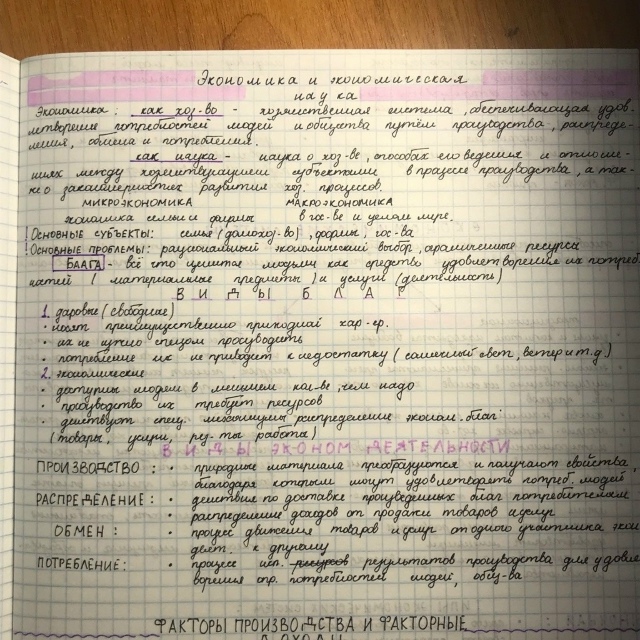 Экономика и экономическая
наука
Экономика: как хоз-во - хозяйственная система, обеспечивающая удов-
летворение потребностей людей и общества путём производства, распреде-
ления, обмена и потребления.
как наука - наука о хоз-ве, способах его ведения и отноше-
ниях между хозяйствующими субъектами в процессе производства, а так-
же о закономерностях развития хоз. процессов.
МИКРОЭКОНОМИКА МАКРОЭКОНОМИКА
экономика семьи и фирмы в гос-ве и целом мире.
ОСНОВНЫЕ СУБЪЕКТЫ: семья (домохоз-во), фирмы, гос-ва
ОСНОВНЫЕ ПРОБЛЕМЫ: рациональный экономический выбор, ограниченные ресурсы
БЛАГА - всё что ценится людьми как средство удовлетворения их потреб
ностей (материальные предметы) и услуги (деятельность)
ВИДЫ БЛАГ
1. даровые (свободные)
• носят преимущественно природный хар-ер.
• их не нужно специально производить
• потребление их не приводит к недостатку (солнечный свет, ветер и т.д.)
2. экономические
• доступны людям в меньшем кол-ве, чем надо
• производство их требует ресурсов
• действует спец. механизм распределение эконом. благ
(товары, услуги, рез-ты работы)
ВИДЫ ЭКОНОМ ДЕЯТЕЛЬНОСТИ
ПРОИЗВОДСТВО: • природные материала преобразуются и получают свойства,
благодаря которым могут удовлетворять потреб. людей
РАСПРЕДЕЛЕНИЕ: • действие по доставке произведенных благ потребителям
• распределение доходов от продажи товаров и услуг
ОБМЕН: • процес движения товаров и услуг от одного участника экон
деят. к другому
ПОТРЕБЛЕНИЕ: • процесс исп. ресурсов результатов производства для удовле
ворения опр. потребностей людей, общ-ва
ФАКТОРЫ ПРОИЗВОДСТВА И ФАКТОРНЫЕ
ДОХОДЫ